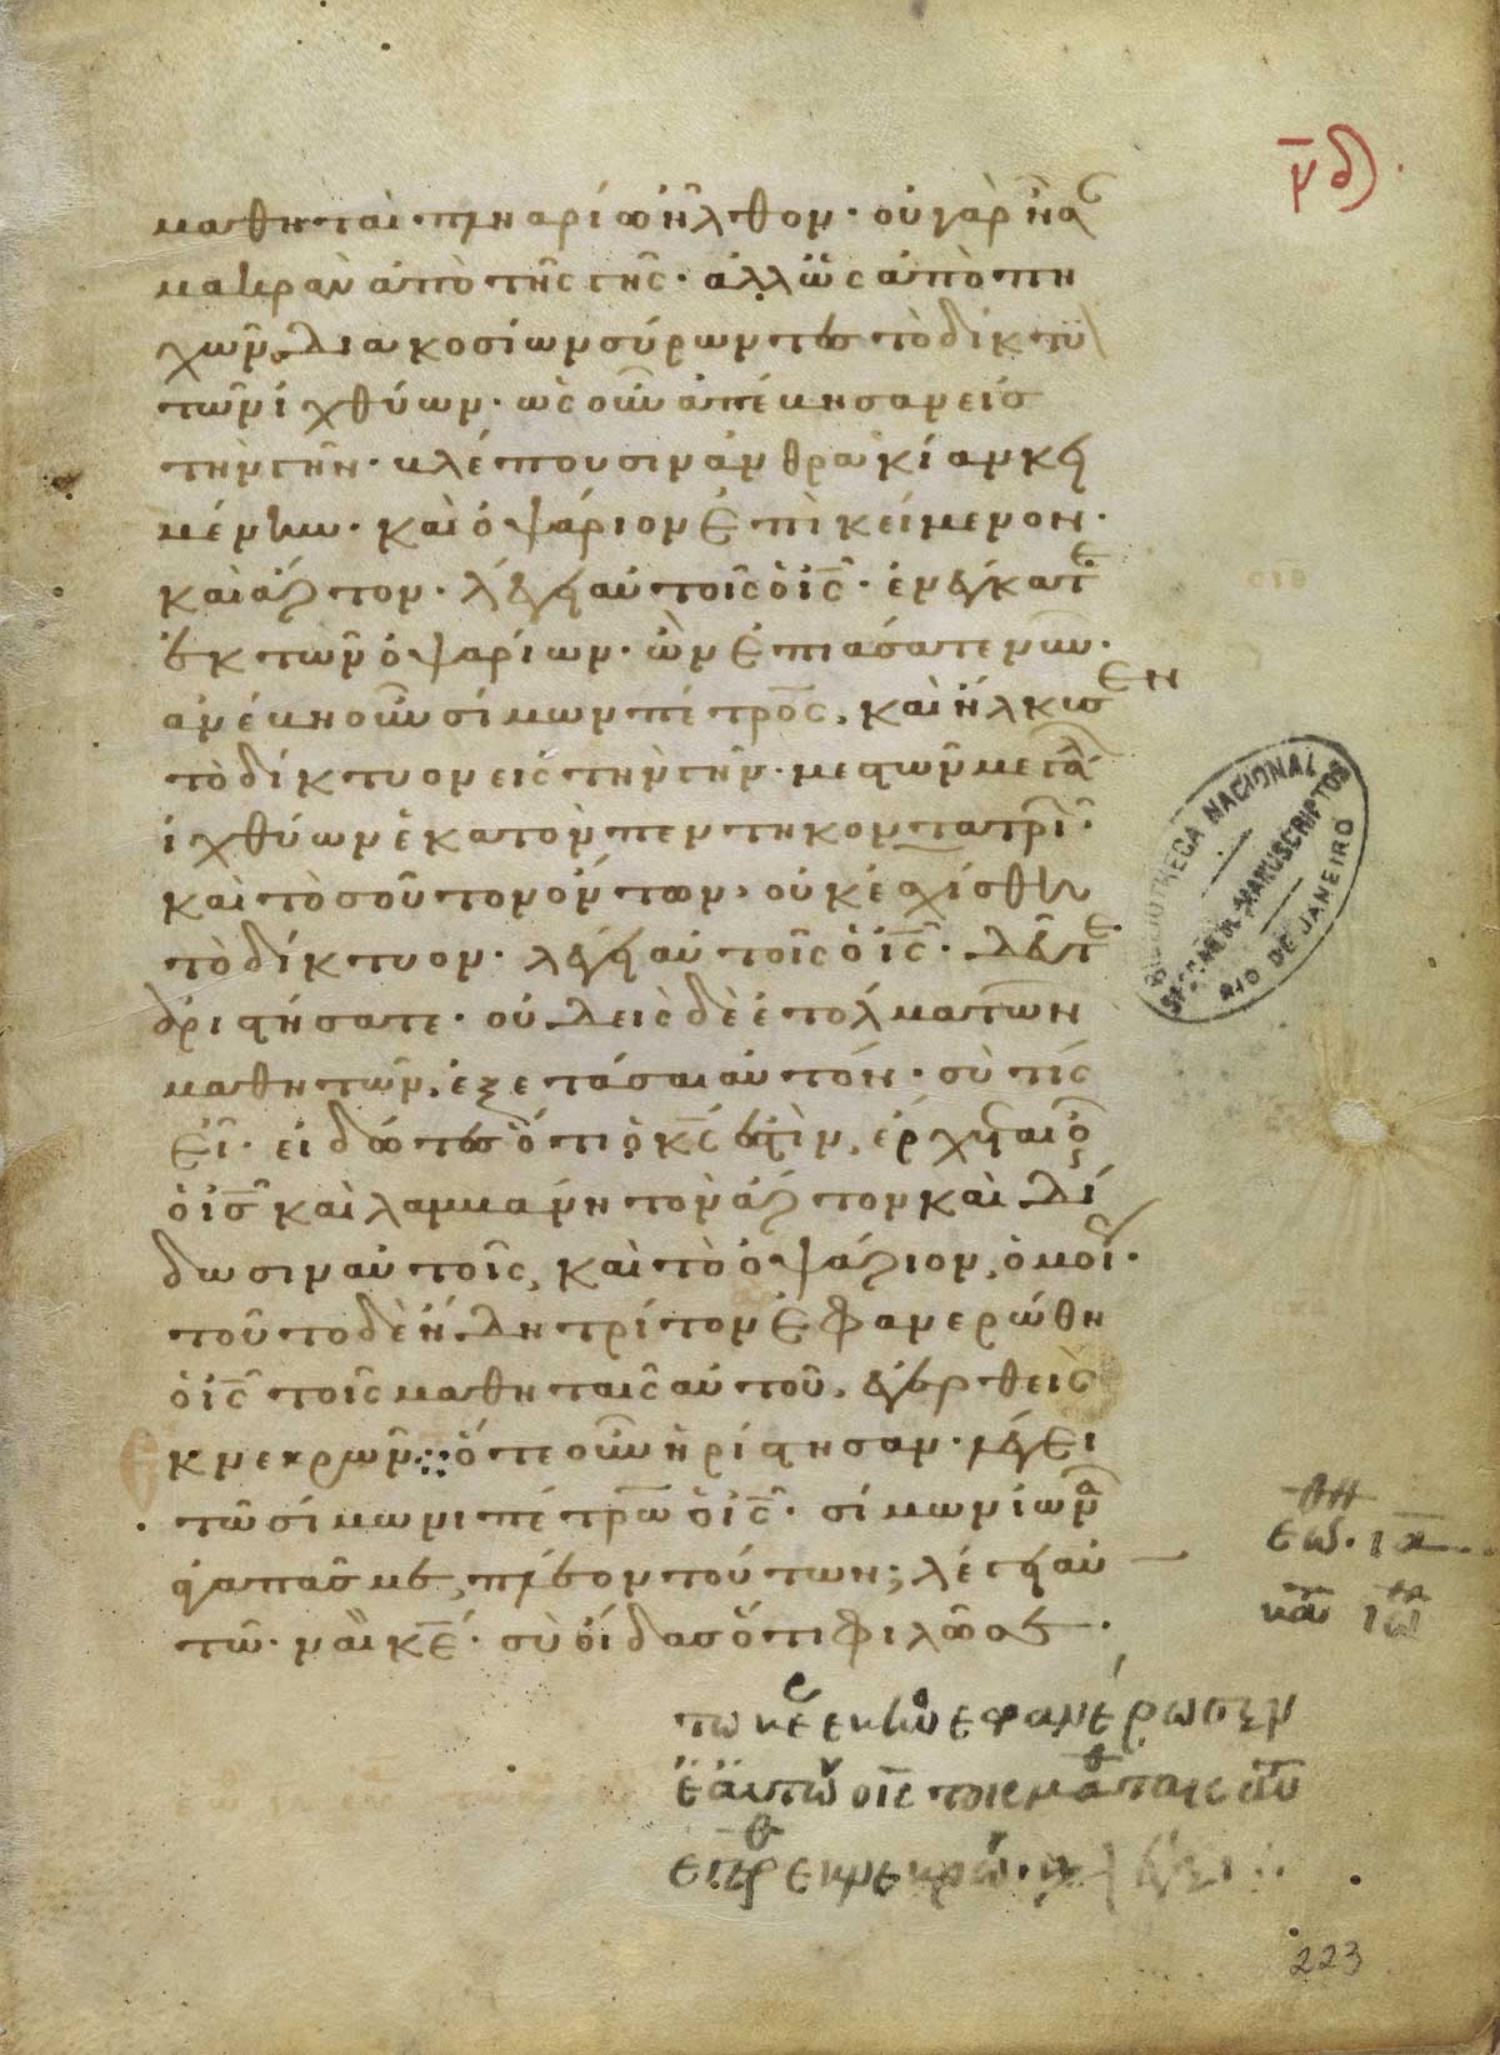 μδ
μαθηταὶ πλοιαρίω ἦλθον· οὐ γὰρ ἦσα
μακρὰν ἀπὸ τῆς γῆς· ἀλλ ὡς ἀπὸ πη
χῶν διακοσίων σύροντες τὸ δίκτυ
τῶν ἰχθύων· ὡς οὖν ἀπέβησαν εἰσ
τὴν γῆν· βλέπουσιν ἀνθρακίαν κει
μένην· καὶ ὀψάριον ἐπικείμενον·
καὶ ἄρτον· λέγει αὐτοῖς ὁ ις· ἐνέγκατε
ἐκ τῶν ὀψαρίων· ὧν ἐπιάσατε νῦν·
ἀνέβη οὖν σίμων πέτρος, καὶ ἥλκυσεν
τὸ δίκτυον εἰς τὴν γῆν· μεστὸν μεγάλ
ἰχθύων ἑκατὸν πεντηκοντατρι·
καὶ τοσούτον ὄντων, οὐκ ἐσχίσθη
τὸ δίκτυον· λέγει αὐτοῖς ὁ ις· δεῦτε
ἀριστήσατε· οὐδεὶς δὲ ἐτόλμα τῶν
μαθητῶν, ἐξετάσαι αὐτόν· σὺ τίς
εἶ· εἰδότες ὅτι ὁ κς ἐστὶν, ἔρχεται ὁ
ὁ ις καὶ λαμβάνει τὸν ἄρτον καὶ δί
δωσιν αὐτοῖς, καὶ τὸ ὀψάριον, ὁμοί·
τοῦτο δὲ ἤδη τρίτον ἐφανερώθη
ὁ ις τοῖς μαθηταῖς αὐτοῦ, ἐγερθεὶς
ἐκ νεκρῶν: ὅτε οὖν ἠρίστησαν· λέγει
τῶ σίμωνι πέτρω ὁ ις· σίμων ἰωνα
ἀγαπᾶς με, πλεῖον τούτων; λέγει αὐ
τῶ· ναὶ κε· σὺ οἶδας ὅτι φιλῶ σε·
εωθ· ια
κατ ιω
τω κε εκω εφανέρωσεν
ἑαυτὸν ο ις τοις μαθταις αυ
εγερθ εκ νεκρω· κ λέγει
BIBLIOTHECA NACIONAL
SECÇÃO DE MANUSCRIPTOS
RIO DE JANEIRO
223